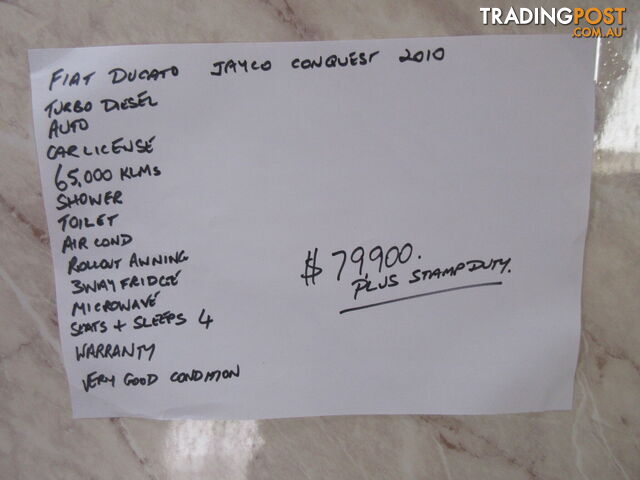 TRADINGPOST
.COM.AU
FIAT DUCATO JAYCO CONQUEST 2010
TURBO DIESEL
AUTO
CAR LICENSE
65,000 KLMS
SHOWER
TOILET
AIR COND
ROLLOUT AWNING
3WAY FRIDGE
MICROWAVE
SEATS + SLEEPS 4
WARRANTY
VERY GOOD CONDITION
$79,900.
PLUS STAMP DUTY.